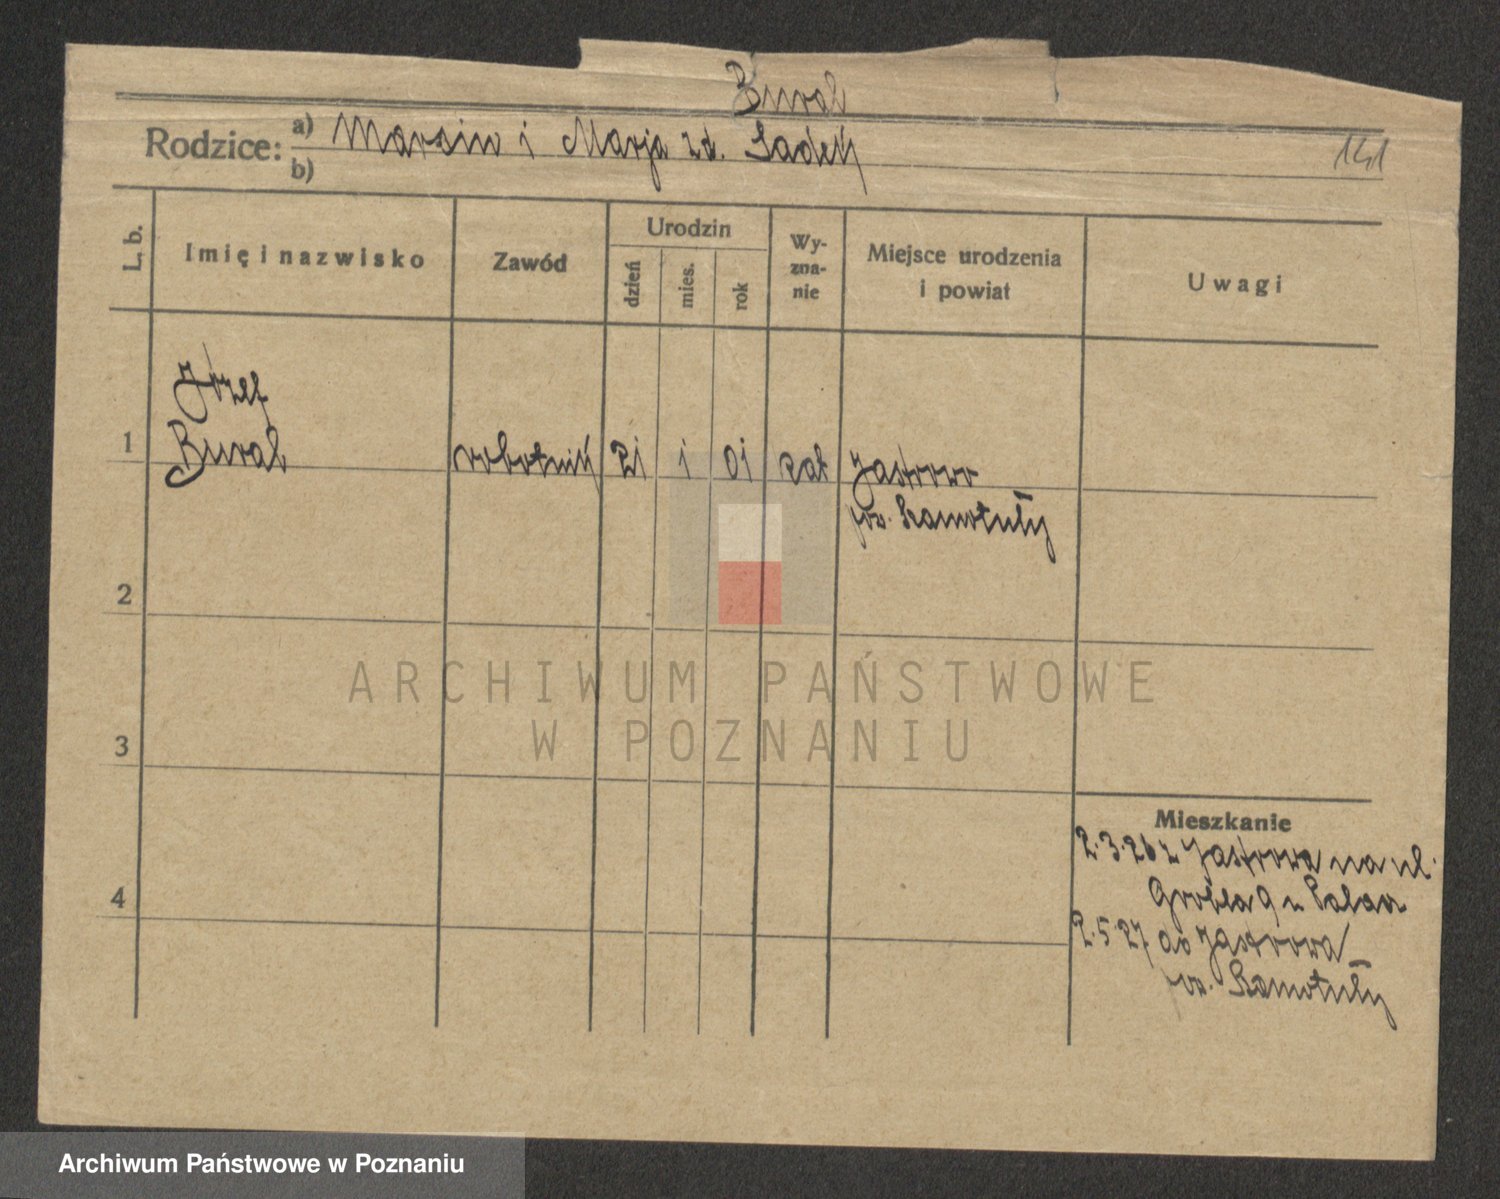 Bural
Rodzice: a) Marcin i Marja zd. Sadej 141
b)
L. b. Imię i nazwisko Zawód Urodzin dzień mies. rok Wy-zna-nie Miejsce urodzenia i powiat Uwagi
Józef
1 Bural robotnik 21 1 01 kat Jastrowo
pow. Szamotuły
2
ARCHIWUM PAŃSTWOWE
W POZNANIU
3
Mieszkanie
2.3.26 z Jastrowa na ul.
4 Grobla 9 u
2.5.27 do Jastrowa
pow. Szamotuły
Archiwum Państwowe w Poznaniu